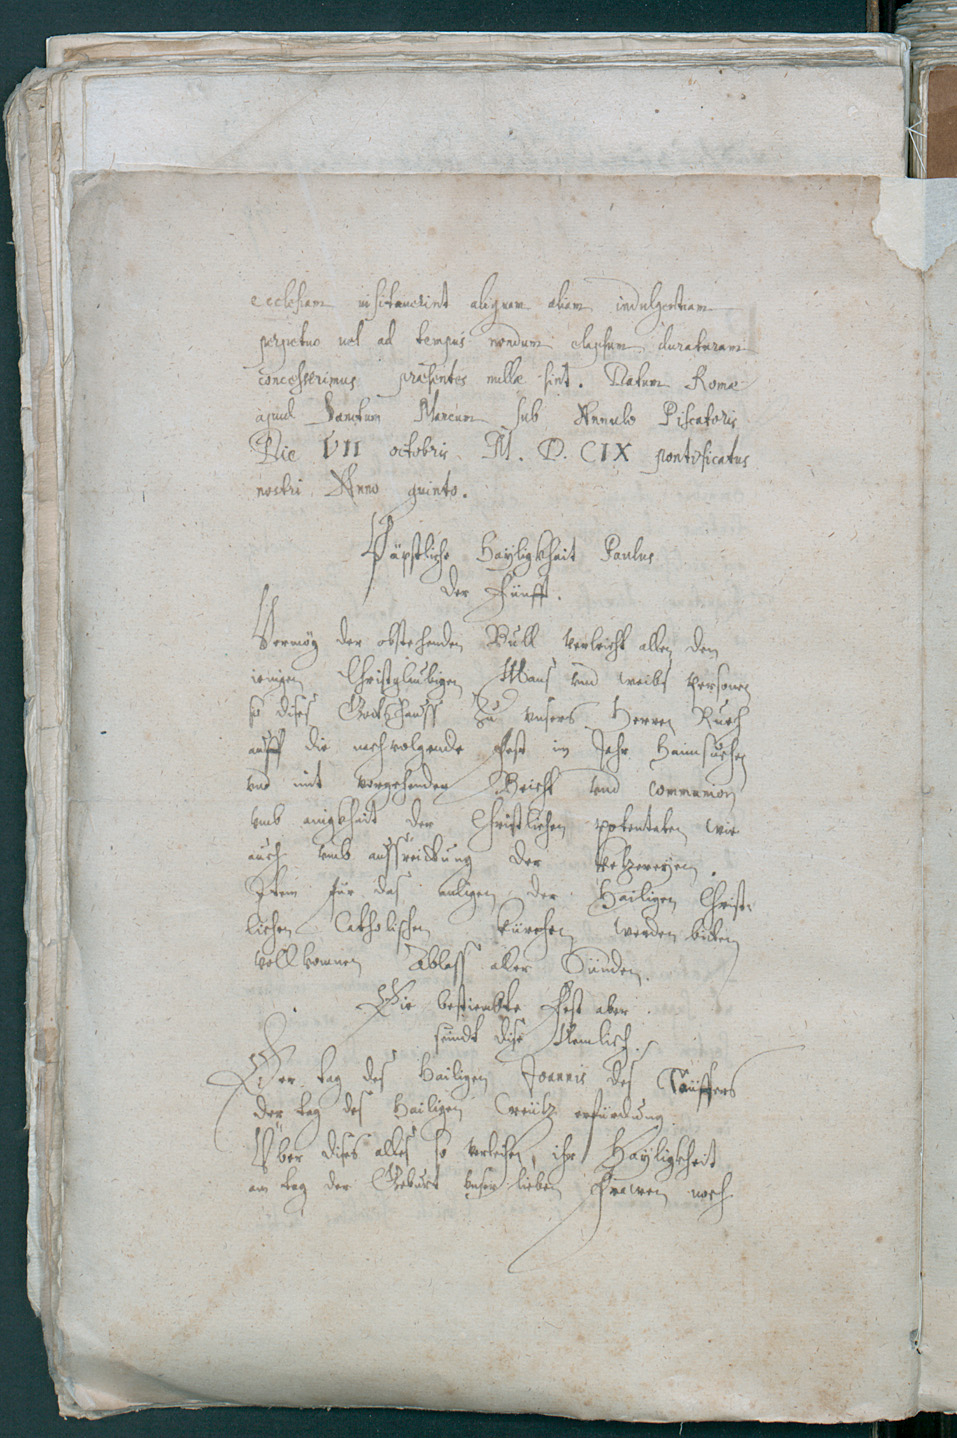 ecclesiam visitauerint aliquam aliam indulgentiam
perpetuo vel ad tempus nondum elapsum duraturam
concesserimus præsentes nullæ sint. Datum Romæ
apud Sanctum Marcum sub Annulo Piscatoris
Die VII octobris. M. D. CIX pontificatus
nostri Anno quinto.
Päpstliche Hayligkhait Paulus
der Fünfft.
Vermög der obstehenden Bull verleicht allen den
ienigen Christglaubigen Mans vnd weibs personen
so dises Gottshauss Zu vnsers Herren Rueh
auff die nachvolgende Fest im Jahr haimsuechen
vnd mit vorgehender Beicht vnd communion
vmb ainigkhait der Christlichen potentaten wie
auch vmb aussreittung der ketzereyen.
Item für das anligen der Hailigen Christ-
lichen Catholischen kürchen werden bitten
vollkomnen Ablass aller Sünden.
Die bestimbte Fest aber
seindt dise Nemlich.
Der tag des Hailigen Joannis des Täuffers
der tag des Hailigen Creütz erfündung.
Vber dises alles so verleihen ihr Hayligkheit
am tag der Geburt vnser lieben Frawen noch